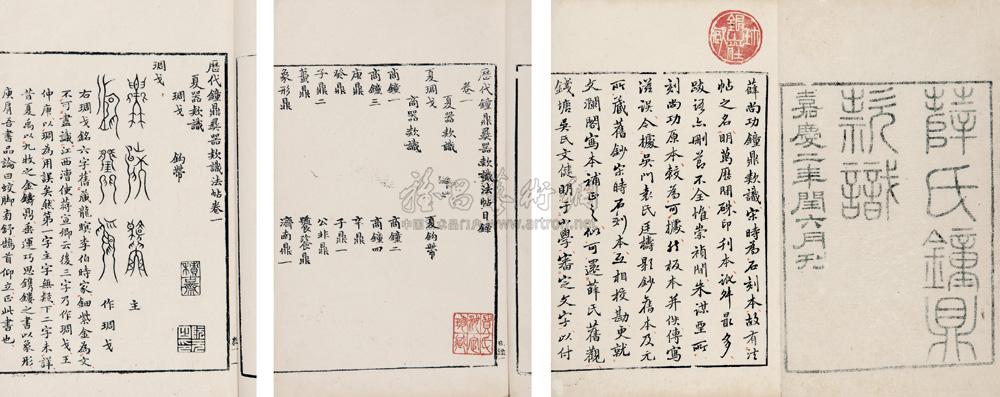 薛氏鐘鼎
款識
嘉慶二年閏六月刊
薛尚功鐘鼎款識宋時為石刻本故有法
帖之名明萬歷間硃印刊本訛舛最多
跋語亦刪蕪不全惟崇禎間朱謀垔所
刻尚功原本較為可據然板本并佚傳寫
滋誤今據吳門袁氏廷檮影鈔舊本及元
所藏舊鈔宋時石刻本互相挍勘更就
文瀾閣寫本補正之似可還薛氏舊觀
錢塘吳氏文健明于小學審定文字以付
歷代鐘鼎彝器款識法帖目錄
卷一
夏器款識
夏琱戈 夏鉤帶
商器款識
商鐘一 商鐘二
商鐘三 商鐘四
庚鼎 辛鼎
癸鼎 子鼎一
子鼎二 公非鼎
蠆鼎 鼎
象形鼎 濟南鼎一
歷代鐘鼎彝器款識法帖卷一
夏器款識
琱戈 鉤帶
琱戈
主 作琱戈
右琱戈銘六字舊藏龍眠李伯時家鈿紫金為文
不可盡識江西漕使蔣宣卿云後三字乃作琱戈王
仲庚以琱為用誤矣然第一字主字無疑下二字未詳
昔夏禹以九牧之金鑄鼎垂運巧思鐫鏤之書以象形
庾肩吾書品論曰蚊脚旁舒鵠首仰立正此書也